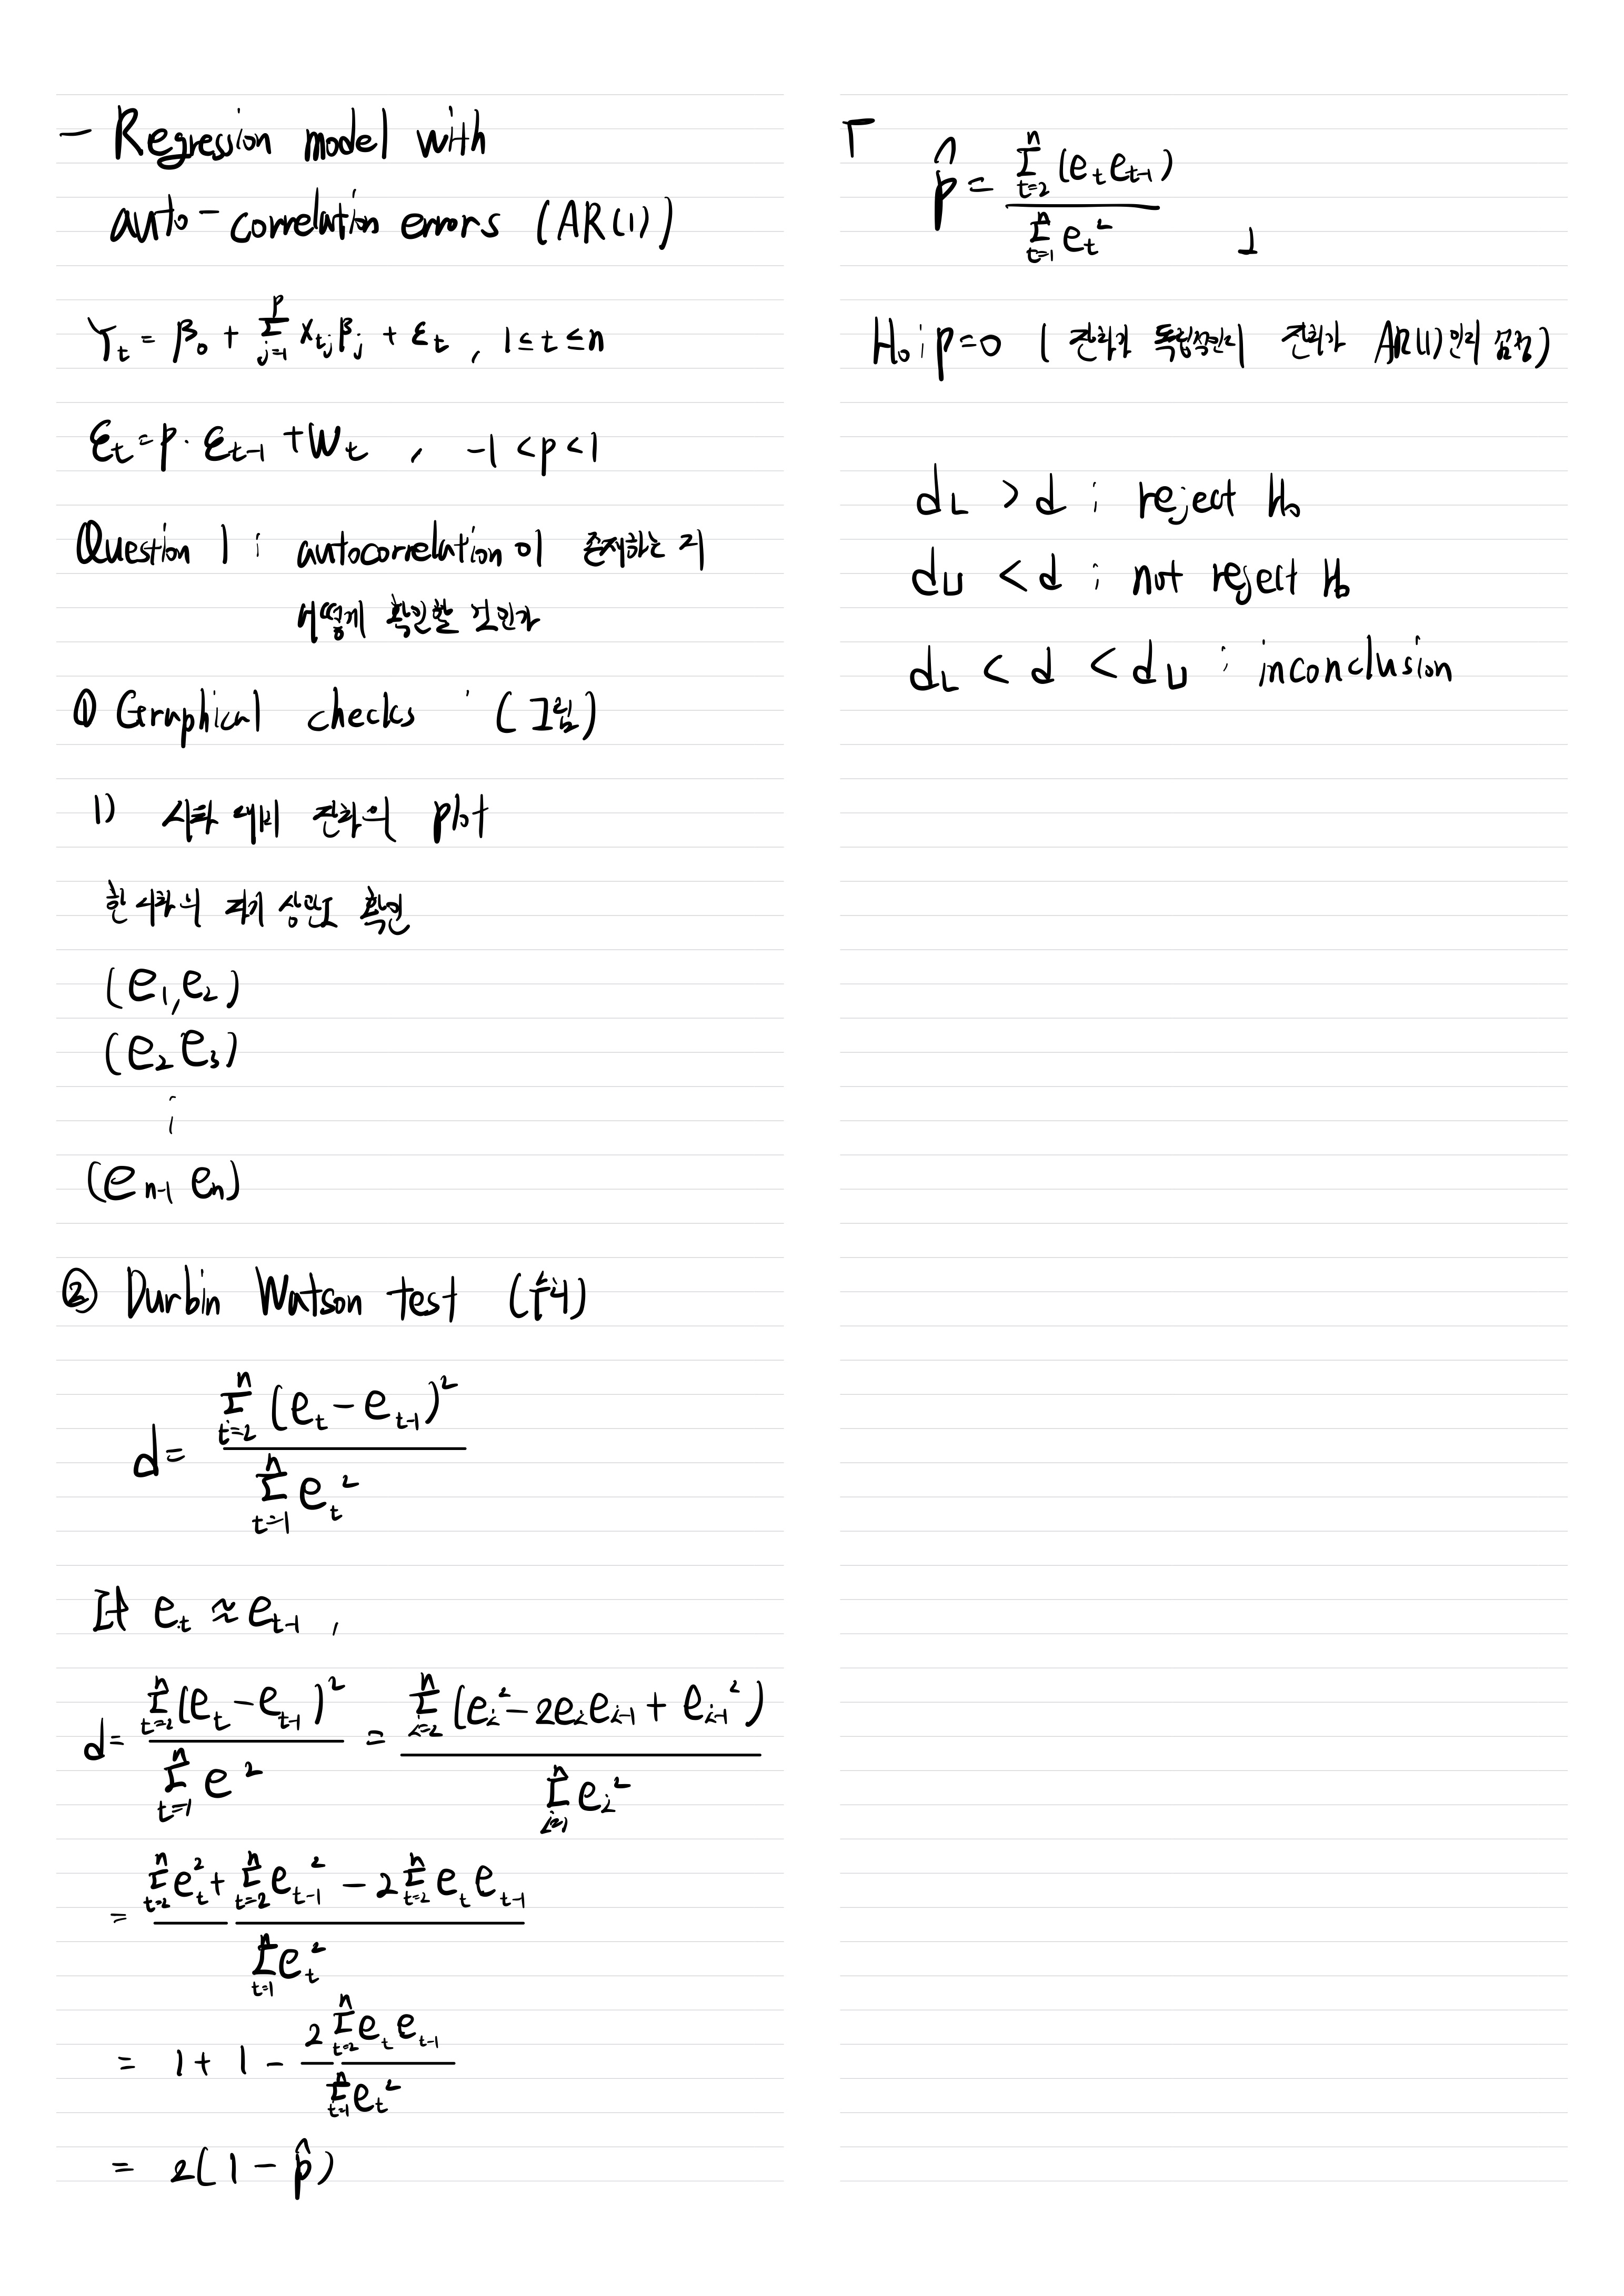 - Regression model with
auto-correlation errors (AR(1))
Y_t = β_0 + Σ_{j=1}^{p} x_{tj} β_j + ε_t , 1 ≤ t ≤ n
ε_t = ρ · ε_{t-1} + W_t , -1 < ρ < 1
Question 1 : autocorrelation이 존재하는 지
어떻게 확인할 것인가
① Graphical checks (그림)
1) 시차 대비 잔차의 plot
한 시차의 자기 상관도 확인
(e_1, e_2)
(e_2 e_3)
⋮
(e_{n-1} e_n)
② Durbin Watson test (수치)
d = Σ_{t=2}^{n} (e_t - e_{t-1})² / Σ_{t=1}^{n} e_t²
If e_t ≈ e_{t-1} ,
d = Σ_{t=2}^{n} (e_t - e_{t-1})² / Σ_{t=1}^{n} e² = Σ_{i=2}^{n} (e_i² - 2e_i e_{i-1} + e_{i-1}²) / Σ_{i=1}^{n} e_i²
= (Σ_{t=2}^{n} e_t² + Σ_{t=2}^{n} e_{t-1}² - 2 Σ_{t=2}^{n} e_t e_{t-1}) / Σ_{t=1}^{n} e_t²
= 1 + 1 - 2 Σ_{t=2}^{n} e_t e_{t-1} / Σ_{t=1}^{n} e_t²
= 2(1 - ρ̂)
「 ρ̂ = Σ_{t=2}^{n} (e_t e_{t-1}) / Σ_{t=1}^{n} e_t² 」
H_0 : ρ = 0 ( 잔차가 독립적인지 잔차가 AR(1)인지 검정)
d_L > d : reject H_0
d_U < d : not reject H_0
d_L < d < d_U : inconclusion